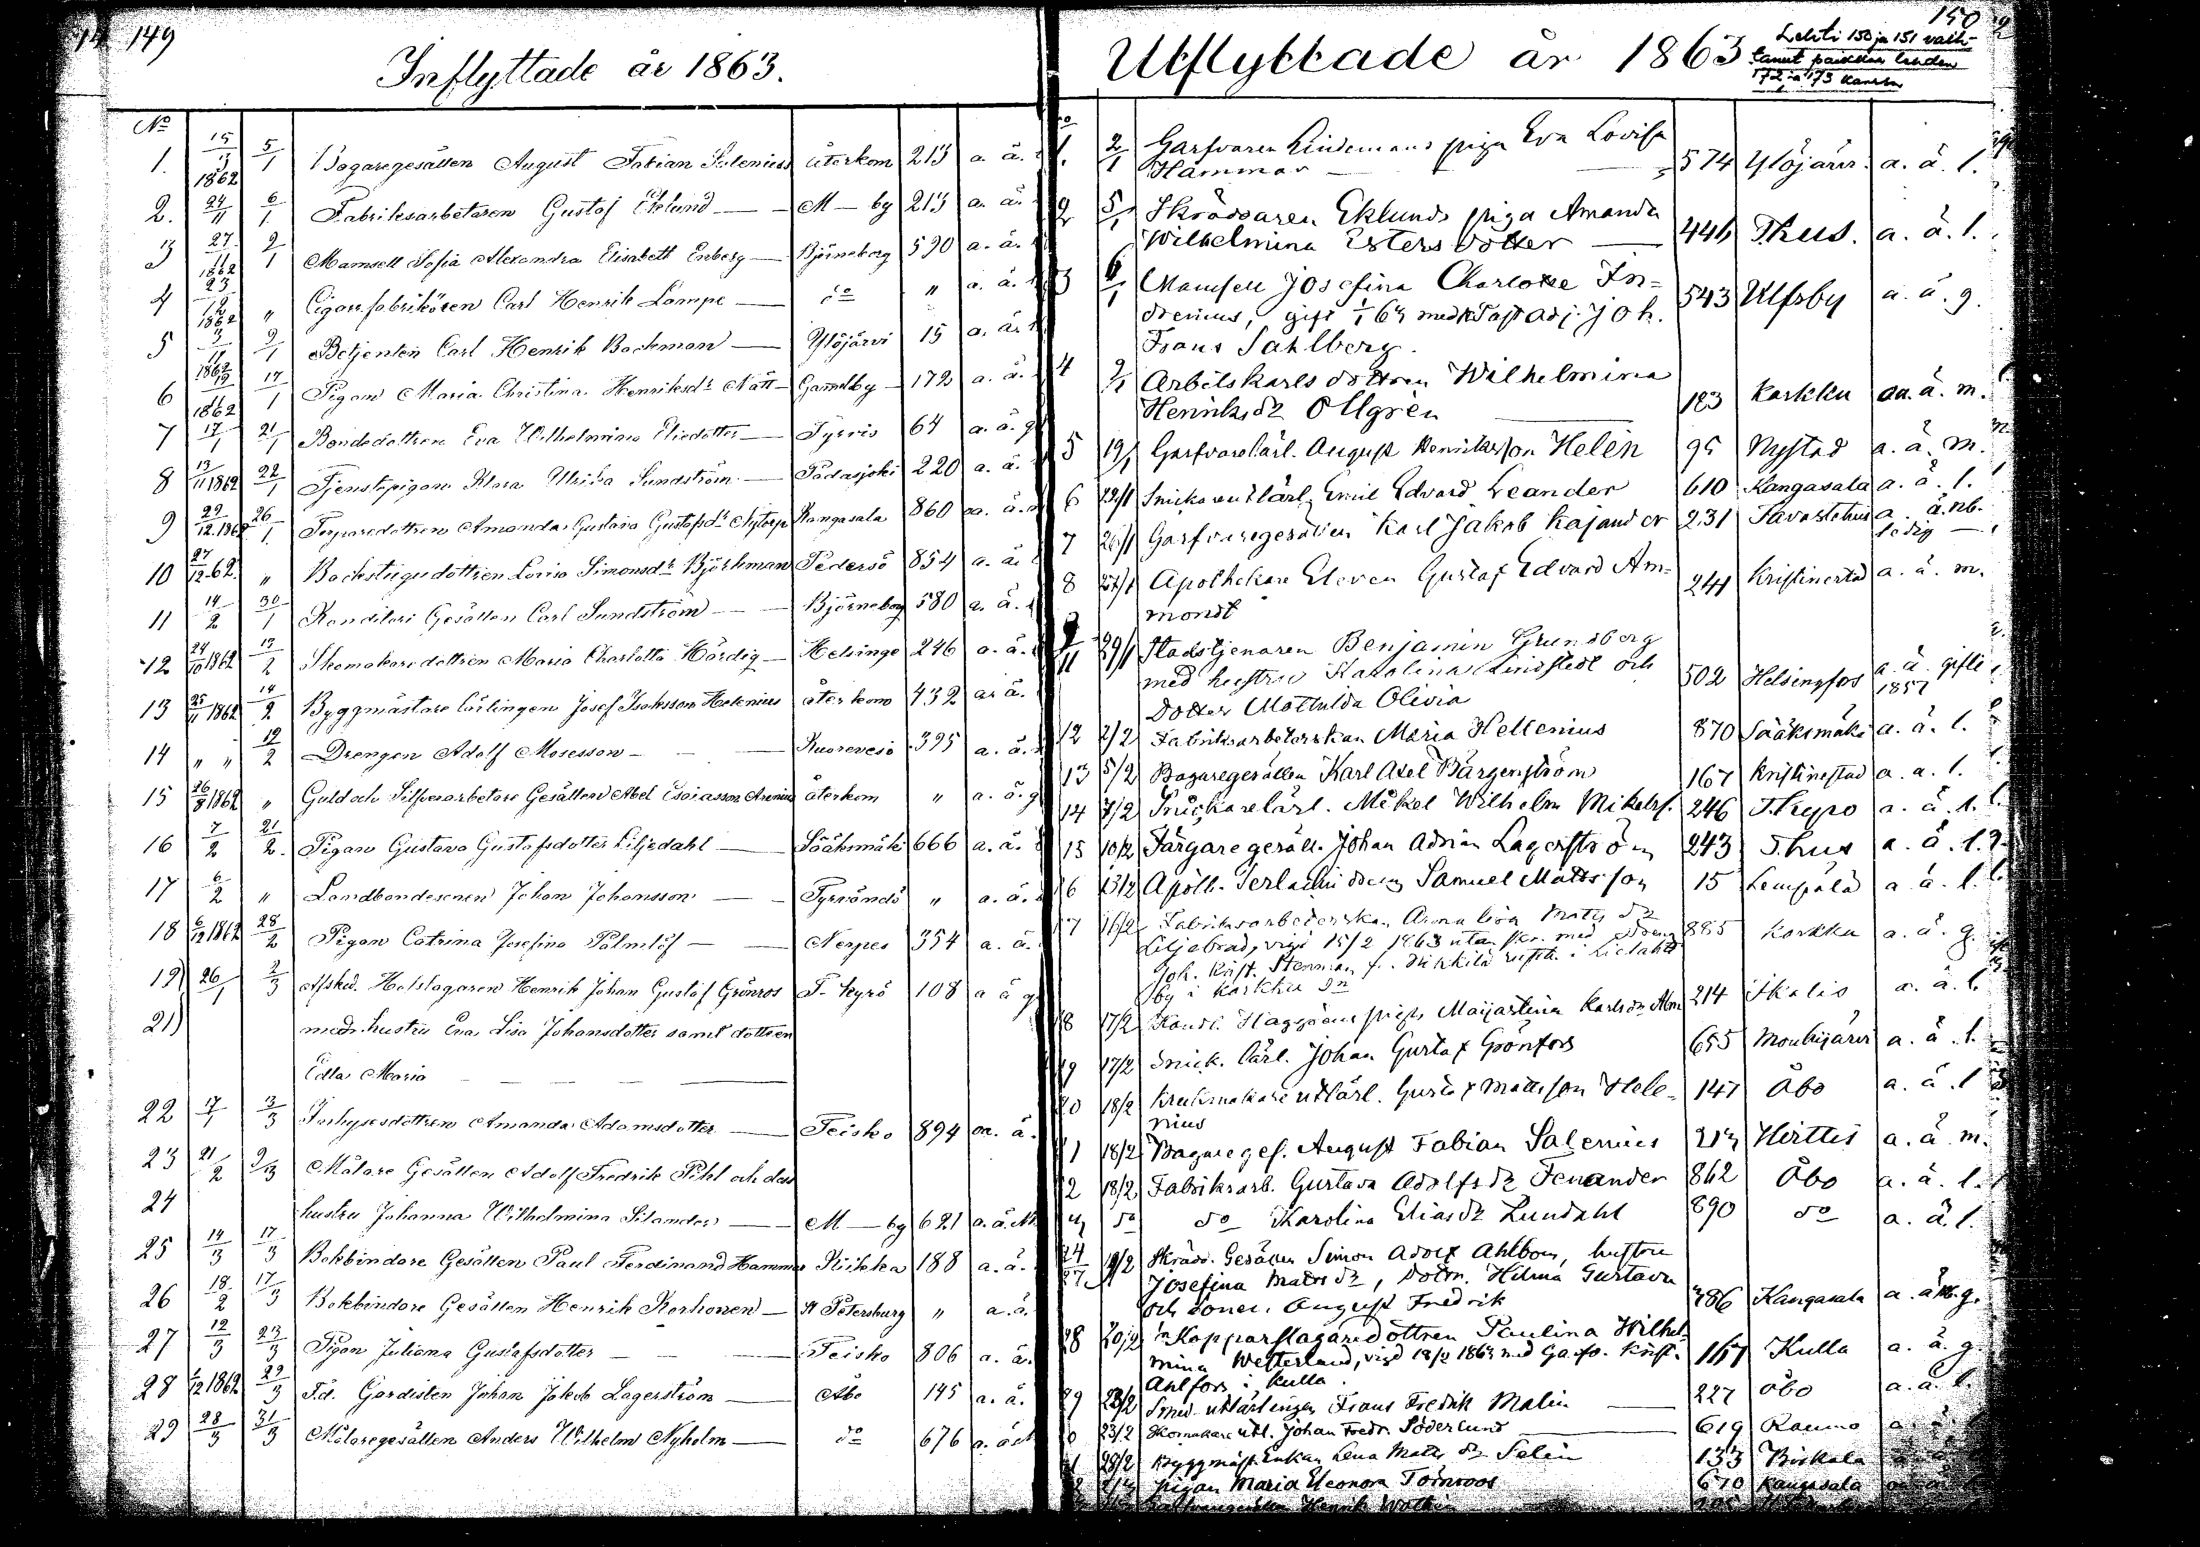 149
Inflyttade år 1863.
No
1. 15/13 1862 5/1 Bagaregesällen August Fabian Salenius återkom 213 a. ä.
2. 24/11 6/1 Fabriksarbetaren Gustaf Eklund — M—by 213 a. ä.
3 27/11 1862 2/1 Mamsell Sofia Alexandra Elisabeth Enberg — Björneborg 590 a. ä.
4 23/12 1862 " Cigarrfabrikören Carl Henrik Lampe — do " a. ä.
5 3/11 1862 9/1 Betjenten Carl Henrik Backman — Ylöjärvi 15 a. ä.
6 19/11 1862 17/1 Pigan Maria Christina Henriksdr Nätt — Gamelby — 172 a. ä.
7 17/1 21/1 Bondedottren Eva Wilhelmina Eliedotter — Tyrvis 64 a. ä. g
8 13/11 1862 22/1 Tjenstepigan Klara Ulrika Sundström — Padasjoki 220 a. ä.
9 29/12 1862 26/1 Torparedottren Amanda Gustava Gustafsdr Nytorp Kangasala 860 a. ä.
10 27/12 62. " Backstugudottren Lovisa Simonsdr Björkman Pedersö 854 a. ä.
11 14/2 30/1 Konditori Gesällen Carl Sundström — Björneborg 580 a. ä.
12 24/10 1862 13/2 Skomakaredottren Maria Charlotta Härdig — Helsinge 246 a. ä.
13 25/11 1862 14/2 Byggmästare Lärlingen Josef Isaksson Helenius återkom 432 a. ä.
14 " " 19/2 Drengen Adolf Mosesson — Kuorevesi 395 a. ä.
15 26/8 1862 " Guld och Silfverarbetare Gesällen Abel Esaiasson Arenius återkom " a. ä. g
16 7/2 21/2. Pigan Gustava Gustafsdotter Liljedahl — Sääksmäki 666 a. ä.
17 6/2 " Landbondesonen Johan Johansson — Tyrvändö " a. ä.
18 6/12 1862 28/2 Pigan Catrina Josefina Palmlöf — Nerpes 354 a. ä.
19) 26/1 2/3 Afsked. Hofslagaren Henrik Johan Gustaf Grönros T. kyrö 108 a ä g
21) med hustru Eva Lisa Johansdotter samt dottren
Edla Maria —
22 17/1 3/3 Inhysesdottren Amanda Adamsdotter — Teisko 894 a. ä.
23 21/2 9/3 Målare Gesällen Adolf Fredrik Pihl och dess
24 hustru Johanna Wilhelmina Silander — M—by 621 a. ä.
25 14/3 17/3 Bokbindare Gesällen Paul Ferdinand Hammar Kiikka 188 a. ä.
26 18/2 17/3 Bokbindare Gesällen Henrik Korhonen — St Petersburg " a. ä.
27 12/3 23/3 Pigan Juliana Gustafsdotter — Teisko 806 a. ä.
28 6/12 1862 29/3 F.d. Gardisten Johan Jakob Lagerström — Åbo 145 a. ä.
29 28/3 31/3 Målaregesällen Anders Wilhelm Nyholm — do 676 a. ä.
150
Utflyttade år 1863
Lehti 150 ja 151 vaih-
tanut paikkaa lehden
172 ja 173 kanssa
1. 2/1 Garfvaren Lindemans piga Eva Lovisa
Hammar — 574 Ylöjärvi. a. ä. l.
2 5/1 Skräddaren Eklunds piga Amanda
Wilhelmina Estersdotter — 446 T.hus. a. ä. l.
3 6/1 Mamsell Josefina Charlotte In-
drenius, gift 1/1 63 med Past adj. Joh.
Frans Sahlberg. 543 Ulfsby a. ä. g.
4 9/1 Arbetskarlsdottren Wilhelmina
Henriksdr Ollgrèn — 183 Karkku a. ä. m.
5 19/1 Garfvarelärl. August Henriksson Helèn 95 Nystad a. ä. m.
6 22/1 Snickareutlärl. Emil Edvard Leander 610 Kangasala a. ä. l.
7 26/1 Garfvaregesällen Karl Jakob Kajander 231 Tavastehus a. ä. nb.
ledig —
8 27/1 Apothekare Eleven Gustaf Edvard Am-
mondt 241 Kristinestad a. ä. m.
9/11 29/1 Stadstjenaren Benjamin Grundberg
med hustru Katalina Lindstedt och
Dotter Mathilda Olivia 502 Helsingfors a. ä. gifte
1857
12 2/2 Fabriksarbeterskan Maria Hellenius 870 Sääksmäki a. ä. l.
13 5/2 Bagaregesällen Karl Axel Bärgenström 167 Kristinestad a. ä. l.
14 7/2 Snickarelärl. Mikel Wilhelm Mikelss. 246 T.kyro a. ä. l.
15 10/2 Färgaregesäll. Johan Adrian Lagerström 243 T.hus a. ä. l.
16 13/2 Samuel Mattsson 15 Lempälä a. ä. l.
17 16/2 Fabriksarbeterskan Annalisa Mattsdr
Liljebrad, vigd 15/2 1863 utan med
Joh. Krist. Stenman i Lielaht
by i Karkku Sn 885 Karkku a. ä. g.
18 17/2 piga Maijastina Karlsdr 214 Ikalis a. ä. l.
19 17/2 Snick. lärl. Johan Gustaf Grönfors 655 Mouhijärvi a. ä. l.
20 18/2 Krukmakare utlärl. Gustaf Mattsson Hele-
nius 147 Åbo a. ä. l
1 18/2 Bagareges. August Fabian Salenius 213 Hvittis a. ä. m.
2 18/2 Fabriksarb. Gustava Adolfsdr Fenander 862 Åbo a. ä. l.
3 do do Karolina Eliasdr Lundahl 890 do a. ä. l.
24/27 19/2 Skrädd. Gesällen Simon Adolf Ahlbom, hustru
Josefina Mattsdr, dottr. Hilma Gustava
och sonen August Fredrik 786 Kangasala a. ä. g.
28 20/2 Kopparslagaredottren Paulina Wilhel-
mina Wetterland, vigd 18/2 1863 med Garfv. Krist.
Ahlfors i Kulla. 167 Kulla a. ä. g.
29 23/2 Smed-utlärlingen Frans Fredrik Malin — 227 Åbo a. ä. l.
0 23/2 Skomakare utl. Johan Fredr. Söderlund — 619 Raumo a.
1 28/2 Byggmäst. Enkan Lena Mattsdr Selin 133 Birkala
Pigan Maria Eleonora Törnroos 670 Kangasala
Henrik